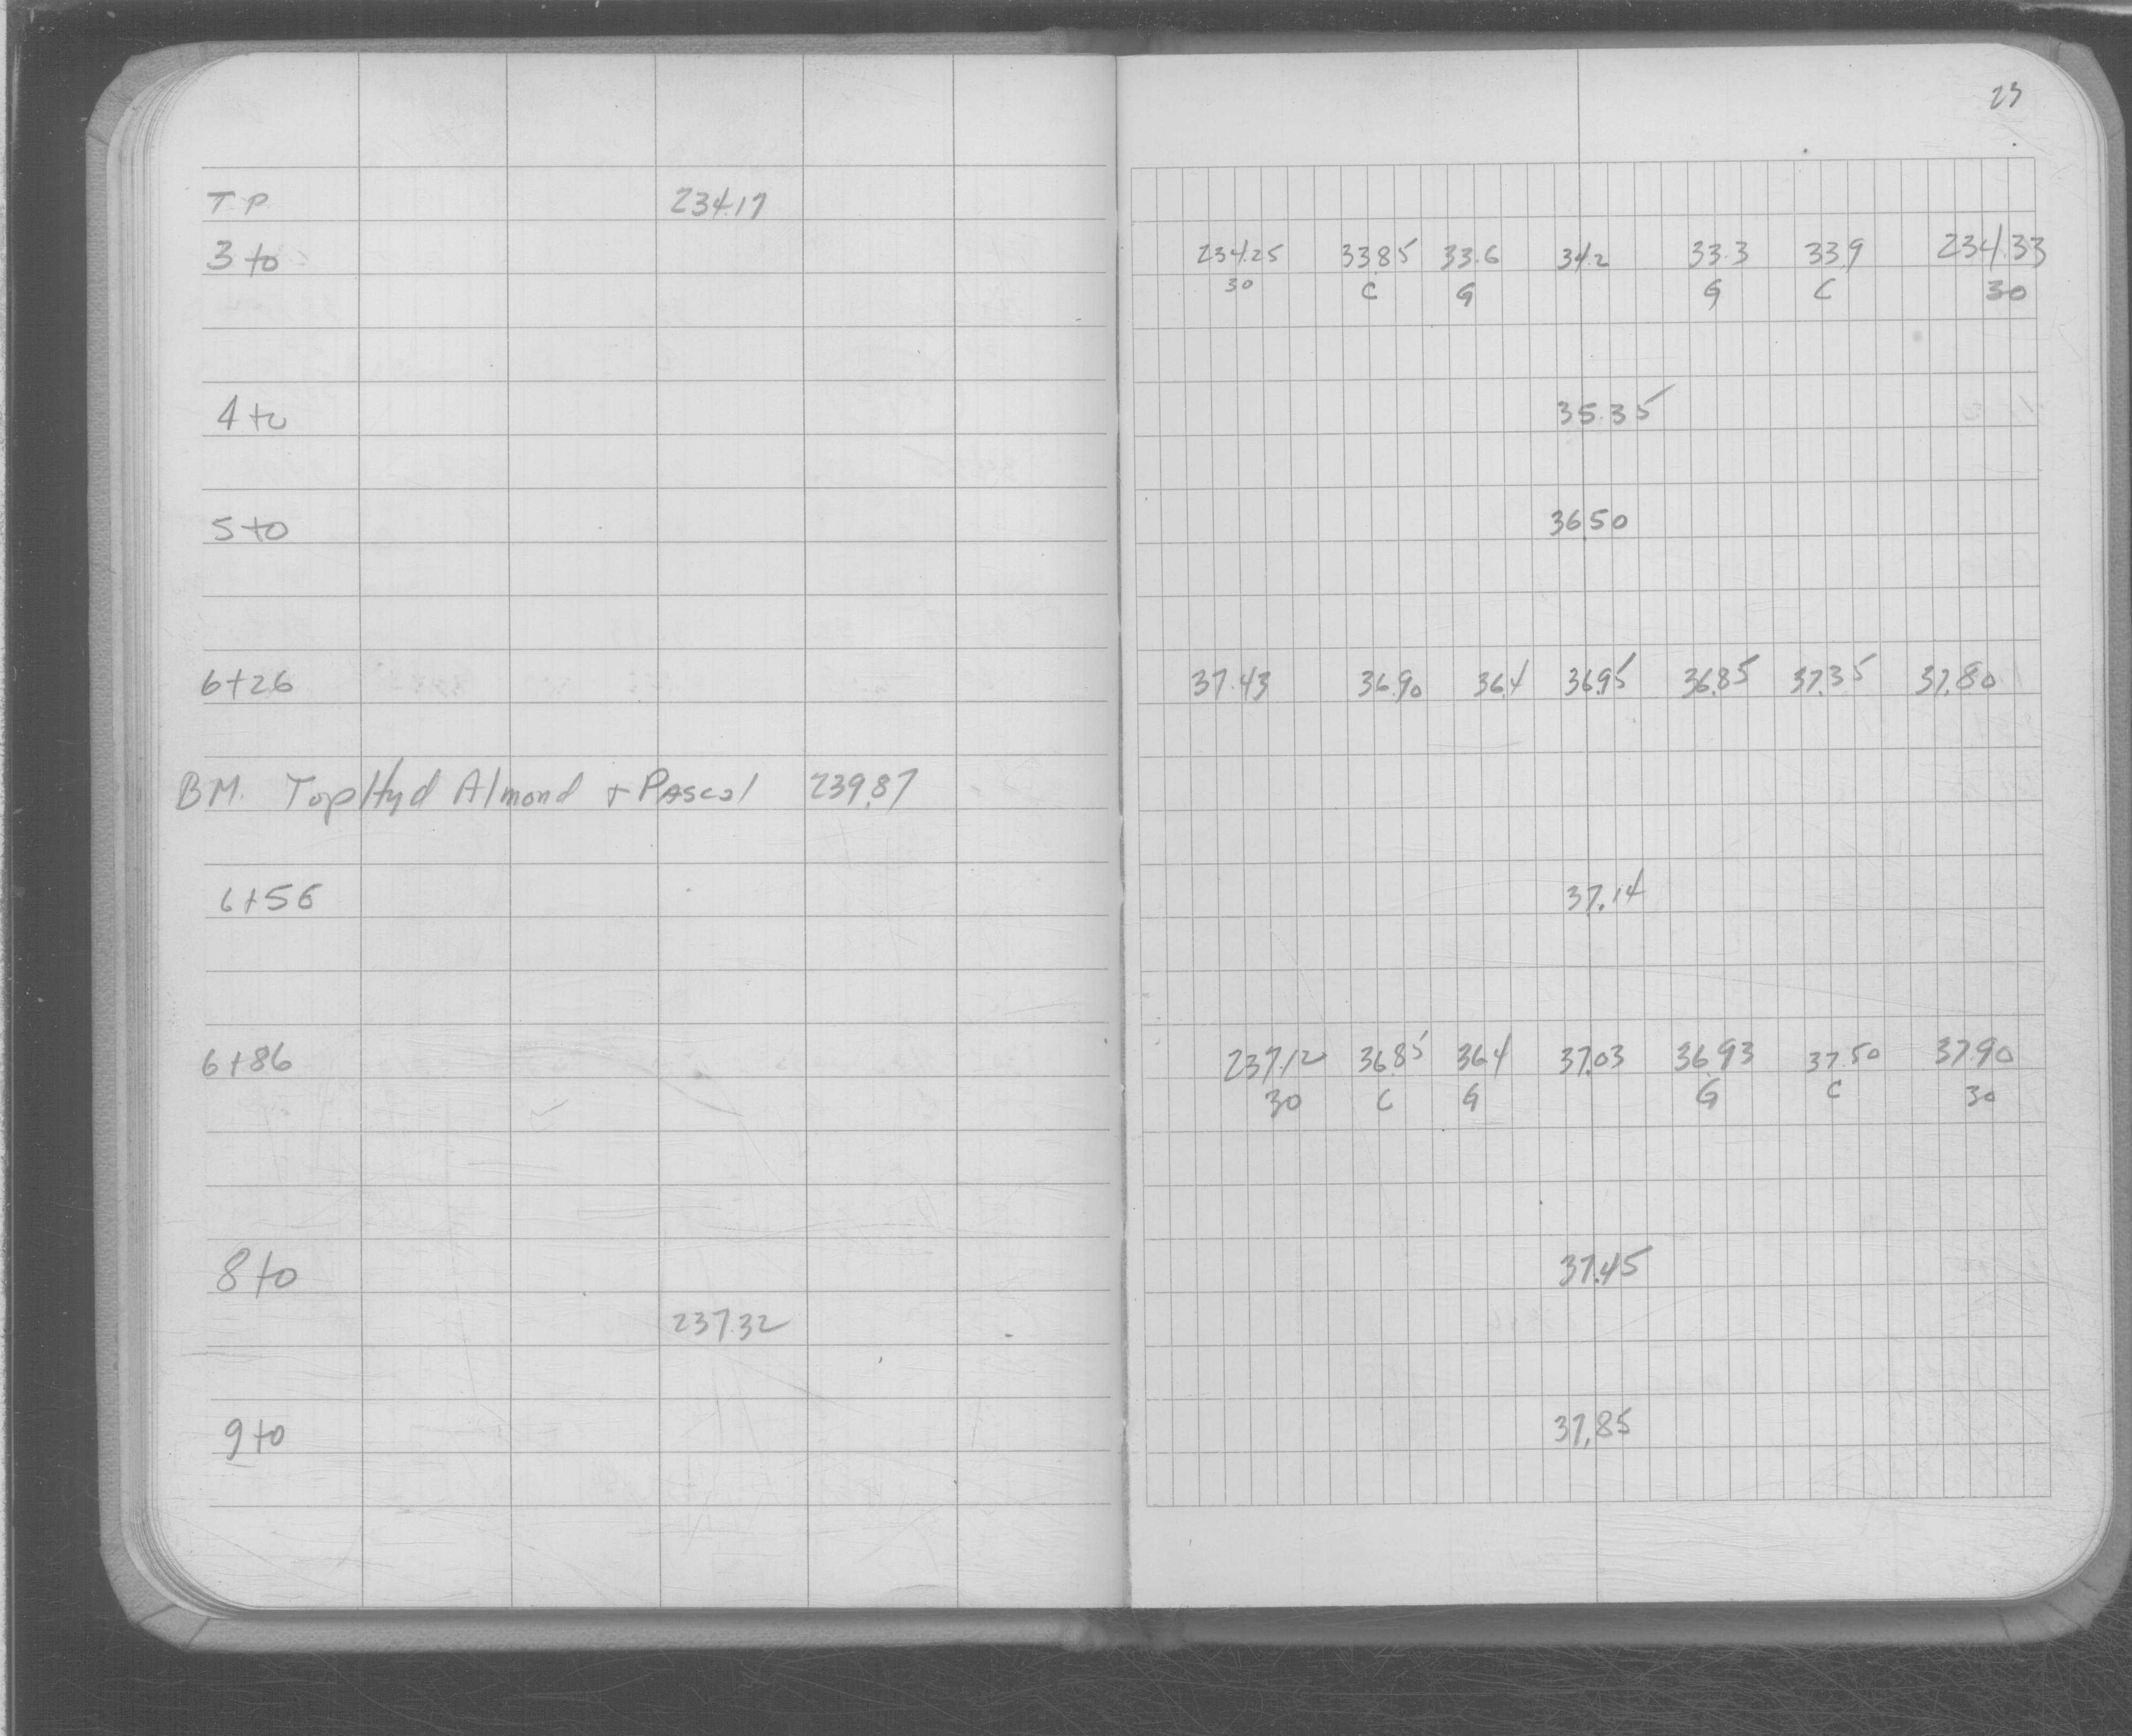 23
T.P. 234.17
3+0 234.25 33.85 33.6 34.2 33.3 33.9 234.33
30 C G G C 30
4+0 35.35
5+0 36.50
6+26 37.43 36.90 36.4 36.95 36.85 37.35 37.80
B.M. Top Hyd Almond + Pascal 239.87
6+56 37.14
6+86 237.12 36.85 36.4 37.03 36.93 37.50 37.90
30 C G G C 30
8+0 37.45
237.32
9+0 37.85